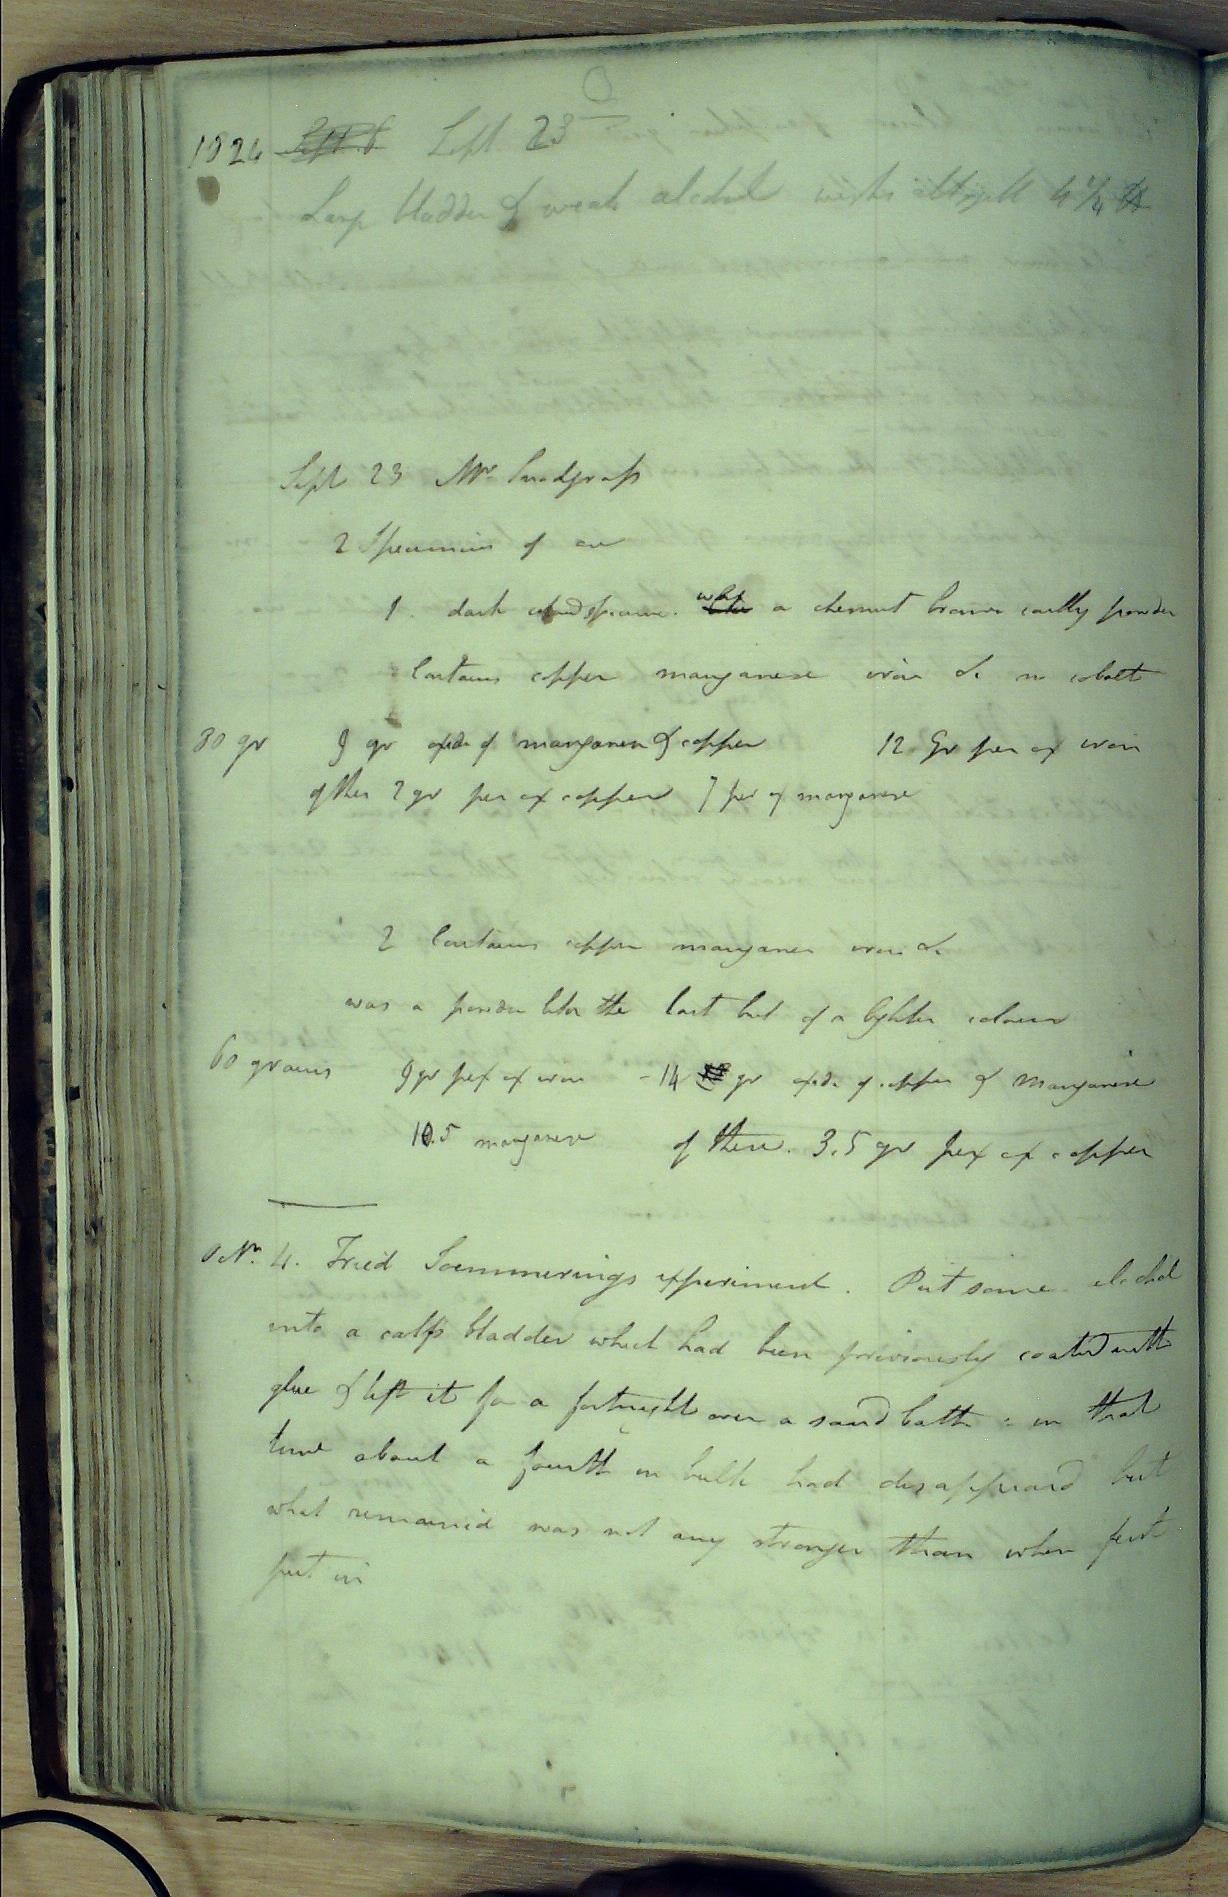 1824 Sept. 8 Sept. 23
Large bladder & weak alcohol weighs altogether 4 1/4 lb
Sept 23 Mr Snodgrass
2 Specimens of ore
1. dark specimen. was a chesnut brown earthly powder
Contains copper manganese iron &c no cobalt
30 gr 9 gr oxide of manganese & copper 12 Gr per ox iron
of this 2 gr per ox copper 7 per ox manganese
2 Contains copper manganese iron &c
was a powder like the last but of a lighter colour
60 grains 9 gr per ox iron - 14 gr oxide of copper & Manganese
10.5 manganese of these. 3.5 gr per ox copper
Octr. 4. Tried Soemmerings experiment. Put some alcohol
into a calfs bladder which had been previously coated with
glue & left it for a fortnight over a sand bath : in that
time about a fourth in bulk had disappeared but
what remained was not any stronger than when first
put in